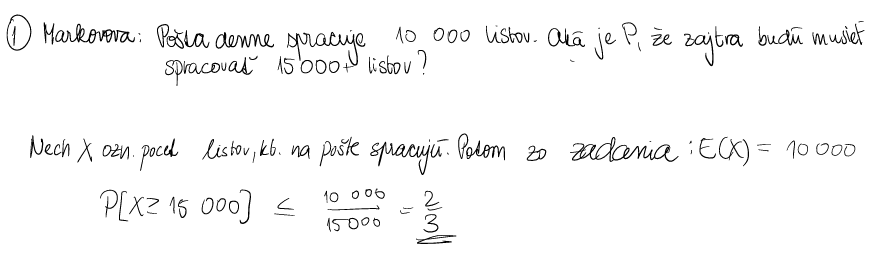 ① Markovova: Pošta denne spracuje 10 000 listov. Aká je P, že zajtra budú musieť
spracovať 15000+ listov?
Nech X ozn. počet listov, kt. na pošte spracujú. Potom zo zadania: E(X) = 10 000
P[X ≥ 15 000] ≤ 10 000 / 15000 = 2/3